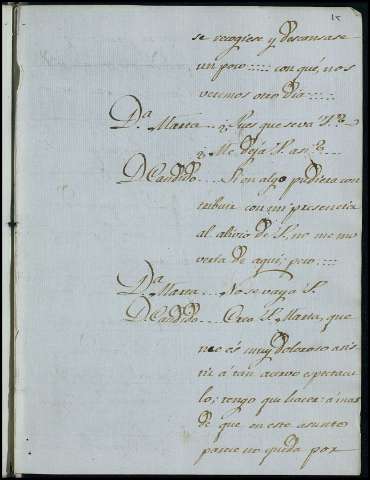 15
se recogiese y descansase
un poco ::::: con qué, nos
veremos otro dia :::::
D.a Marta ... ¿Pues que se vá V.?
¿Me deja V. asi?
D. Candido .... Si en algo pudiera con
tribuir con mi presencia
al alivio de V. no me mo
veria de aqui; pero ::::
D.a Marta .... No se vaya V.
D. Candido .... Crea V. Marta, que
me és muy doloroso asis
tir á tan acervo espectacu
lo; tengo que hacer: á mas
de que en este asunto
parece no queda por